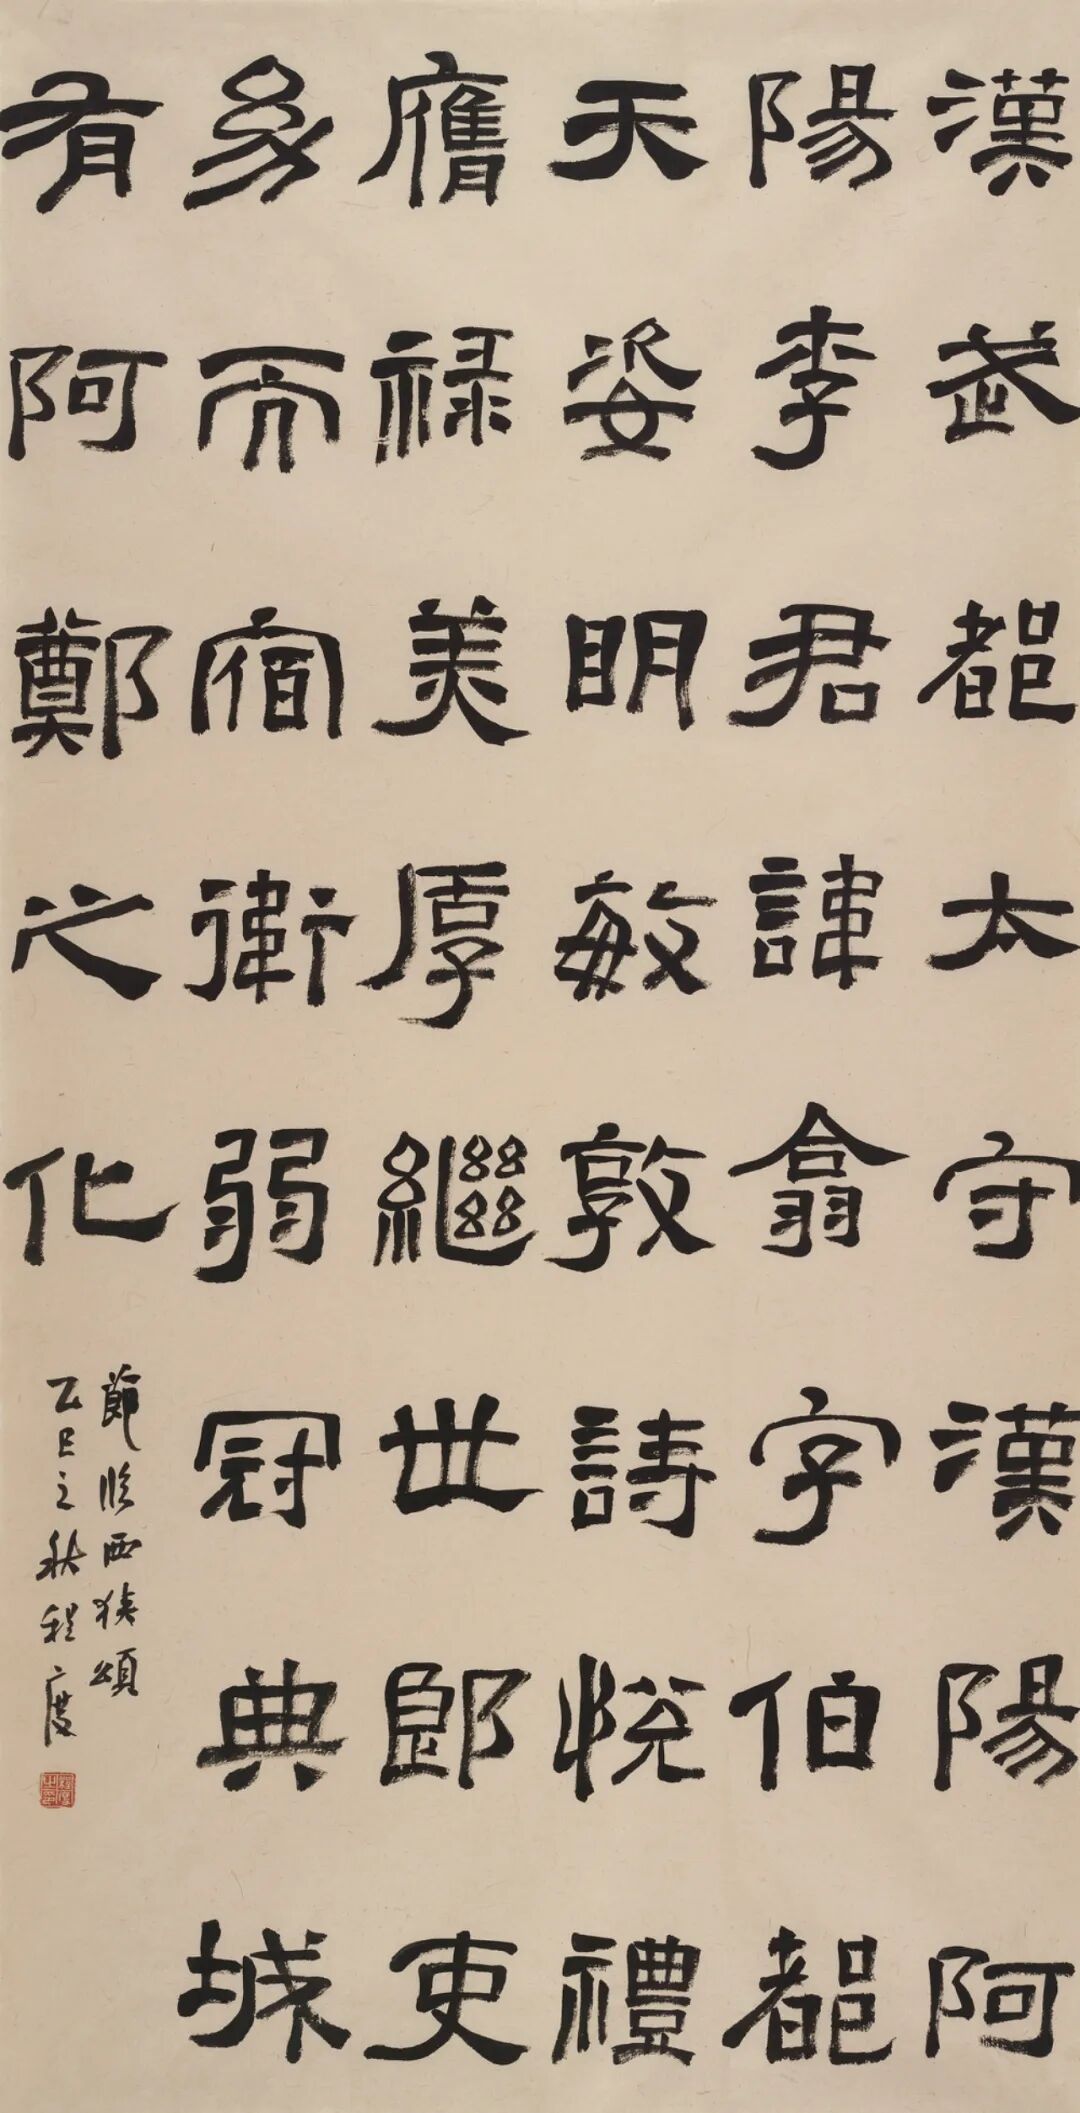 漢武都太守漢陽阿
陽李君諱翕字伯都
天姿明敏敦詩悅禮
膺祿美厚繼世郎吏
幼而宿衛弱冠典城
有阿鄭之化
節臨西狹頌
乙巳之秋程度
程度之印